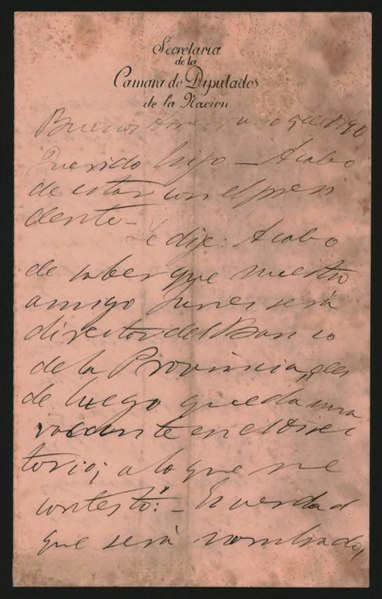 Secretaría
de la
Camara de Diputados
de la Nacion
Buenos Aires, 90
Querido hijo – Acabo
de estar con el presi
dente –
Le dije: Acabo
de saber que nuestro
amigo será
director del Banco
de la Provincia, des
de luego queda una
vacante en el Direc
torio; a lo que me
contestó: – Es verdad
que será nombrado,